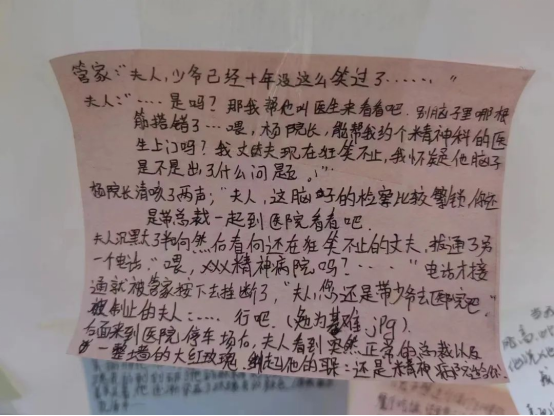 管家:“夫人,少爷已经十年没这么笑过了……”
夫人:“……是吗?那我帮他叫医生来看看吧.别脑子里哪根
筋搭错了…喂,杨院长,能帮我约个精神科的医
生上门吗?我丈夫现在狂笑不止,我怀疑他脑子
是不是出了什么问题。!”
杨院长清咳了两声,“夫人,这脑子的检察比较繁锁,你还
是带总裁一起到医院看看吧.
夫人沉默了半向然后看向还在狂笑不止的丈夫,拨通了另
一个电话,“喂,xxx精神病院吗?……”电话才接
通就被管家按下去挂断了,“夫人,您还是带少爷去医院吧.”
被制止的夫人:……行吧.(勉为其难.jpg).
后面来到医院停车场后,夫人看到突然正常的总裁以及
一整墙的大红玫瑰,:还是精神病院